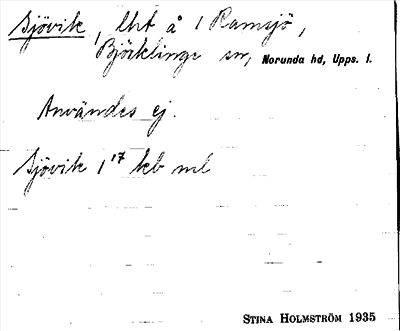 Sjövik, lht å 1 Ramsjö,
Björklinge sn, Norunda hd, Upps. l.
Användes ej.
Sjövik 1 17 keb ml
STINA HOLMSTRÖM 1935